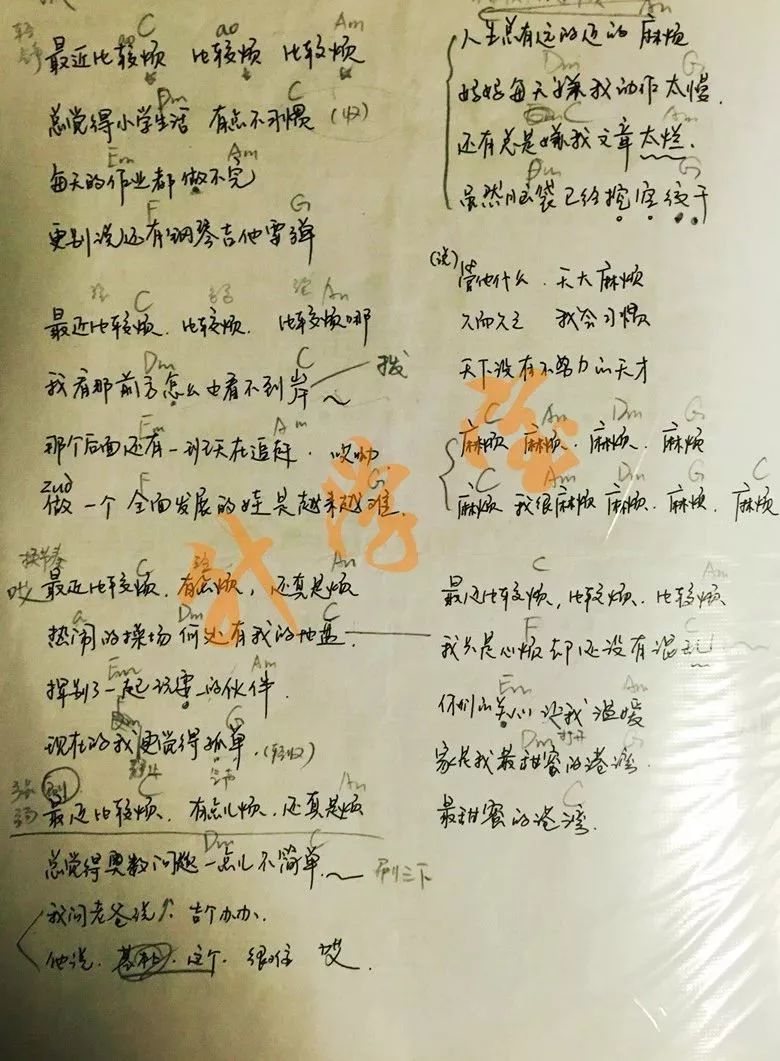 C ao Am
最近比较烦 比较烦 比较烦
Dm C
总觉得小学生活 有点不习惯 (收)
Em Am
每天的作业都做不完
F G
更别说还有钢琴吉他要弹
C Am
最近比较烦. 比较烦. 比较烦哪
Dm C
我看那前方怎么也看不到岸 拨
Em Am
那个后面还有一班天才在追赶. 哎呦
zuo F G
做一个全面发展的娃是越来越难
换节奏 C Am
哎 最近比较烦. 有点烦, 还真是烦
a Dm C
热闹的操场 何处有我的地盘
Em Am
挥别了一起玩耍的伙伴.
G
现在的我更觉得孤单. (轻收)
C Am
最近比较烦. 有点儿烦. 还真是烦
Dm C
总觉得奥数问题一点儿不简单 刷三下
我问老爸说 咋个办办.
他说. 基本. 这个. 很难 哎
Am
人生总有远的近的 麻烦
Dm G
妈妈每天嫌我动作太慢
C Am
还有总是嫌我文章太烂.
Dm G
虽然脑袋已经挖空绞干
(说) 管他什么. 天大麻烦
久而久之 我会习惯
天下没有不努力的天才
C Am Dm G
麻烦 麻烦. 麻烦. 麻烦
C Am Dm G C
麻烦 我很麻烦 麻烦. 麻烦. 麻烦
C Am
最近比较烦, 比较烦. 比较烦
F C
我只是心烦却还没有混乱
Em Am
你们的关心 让我温暖
Dm 打开 G
家是我最甜蜜的港湾
C
最甜蜜的港湾.